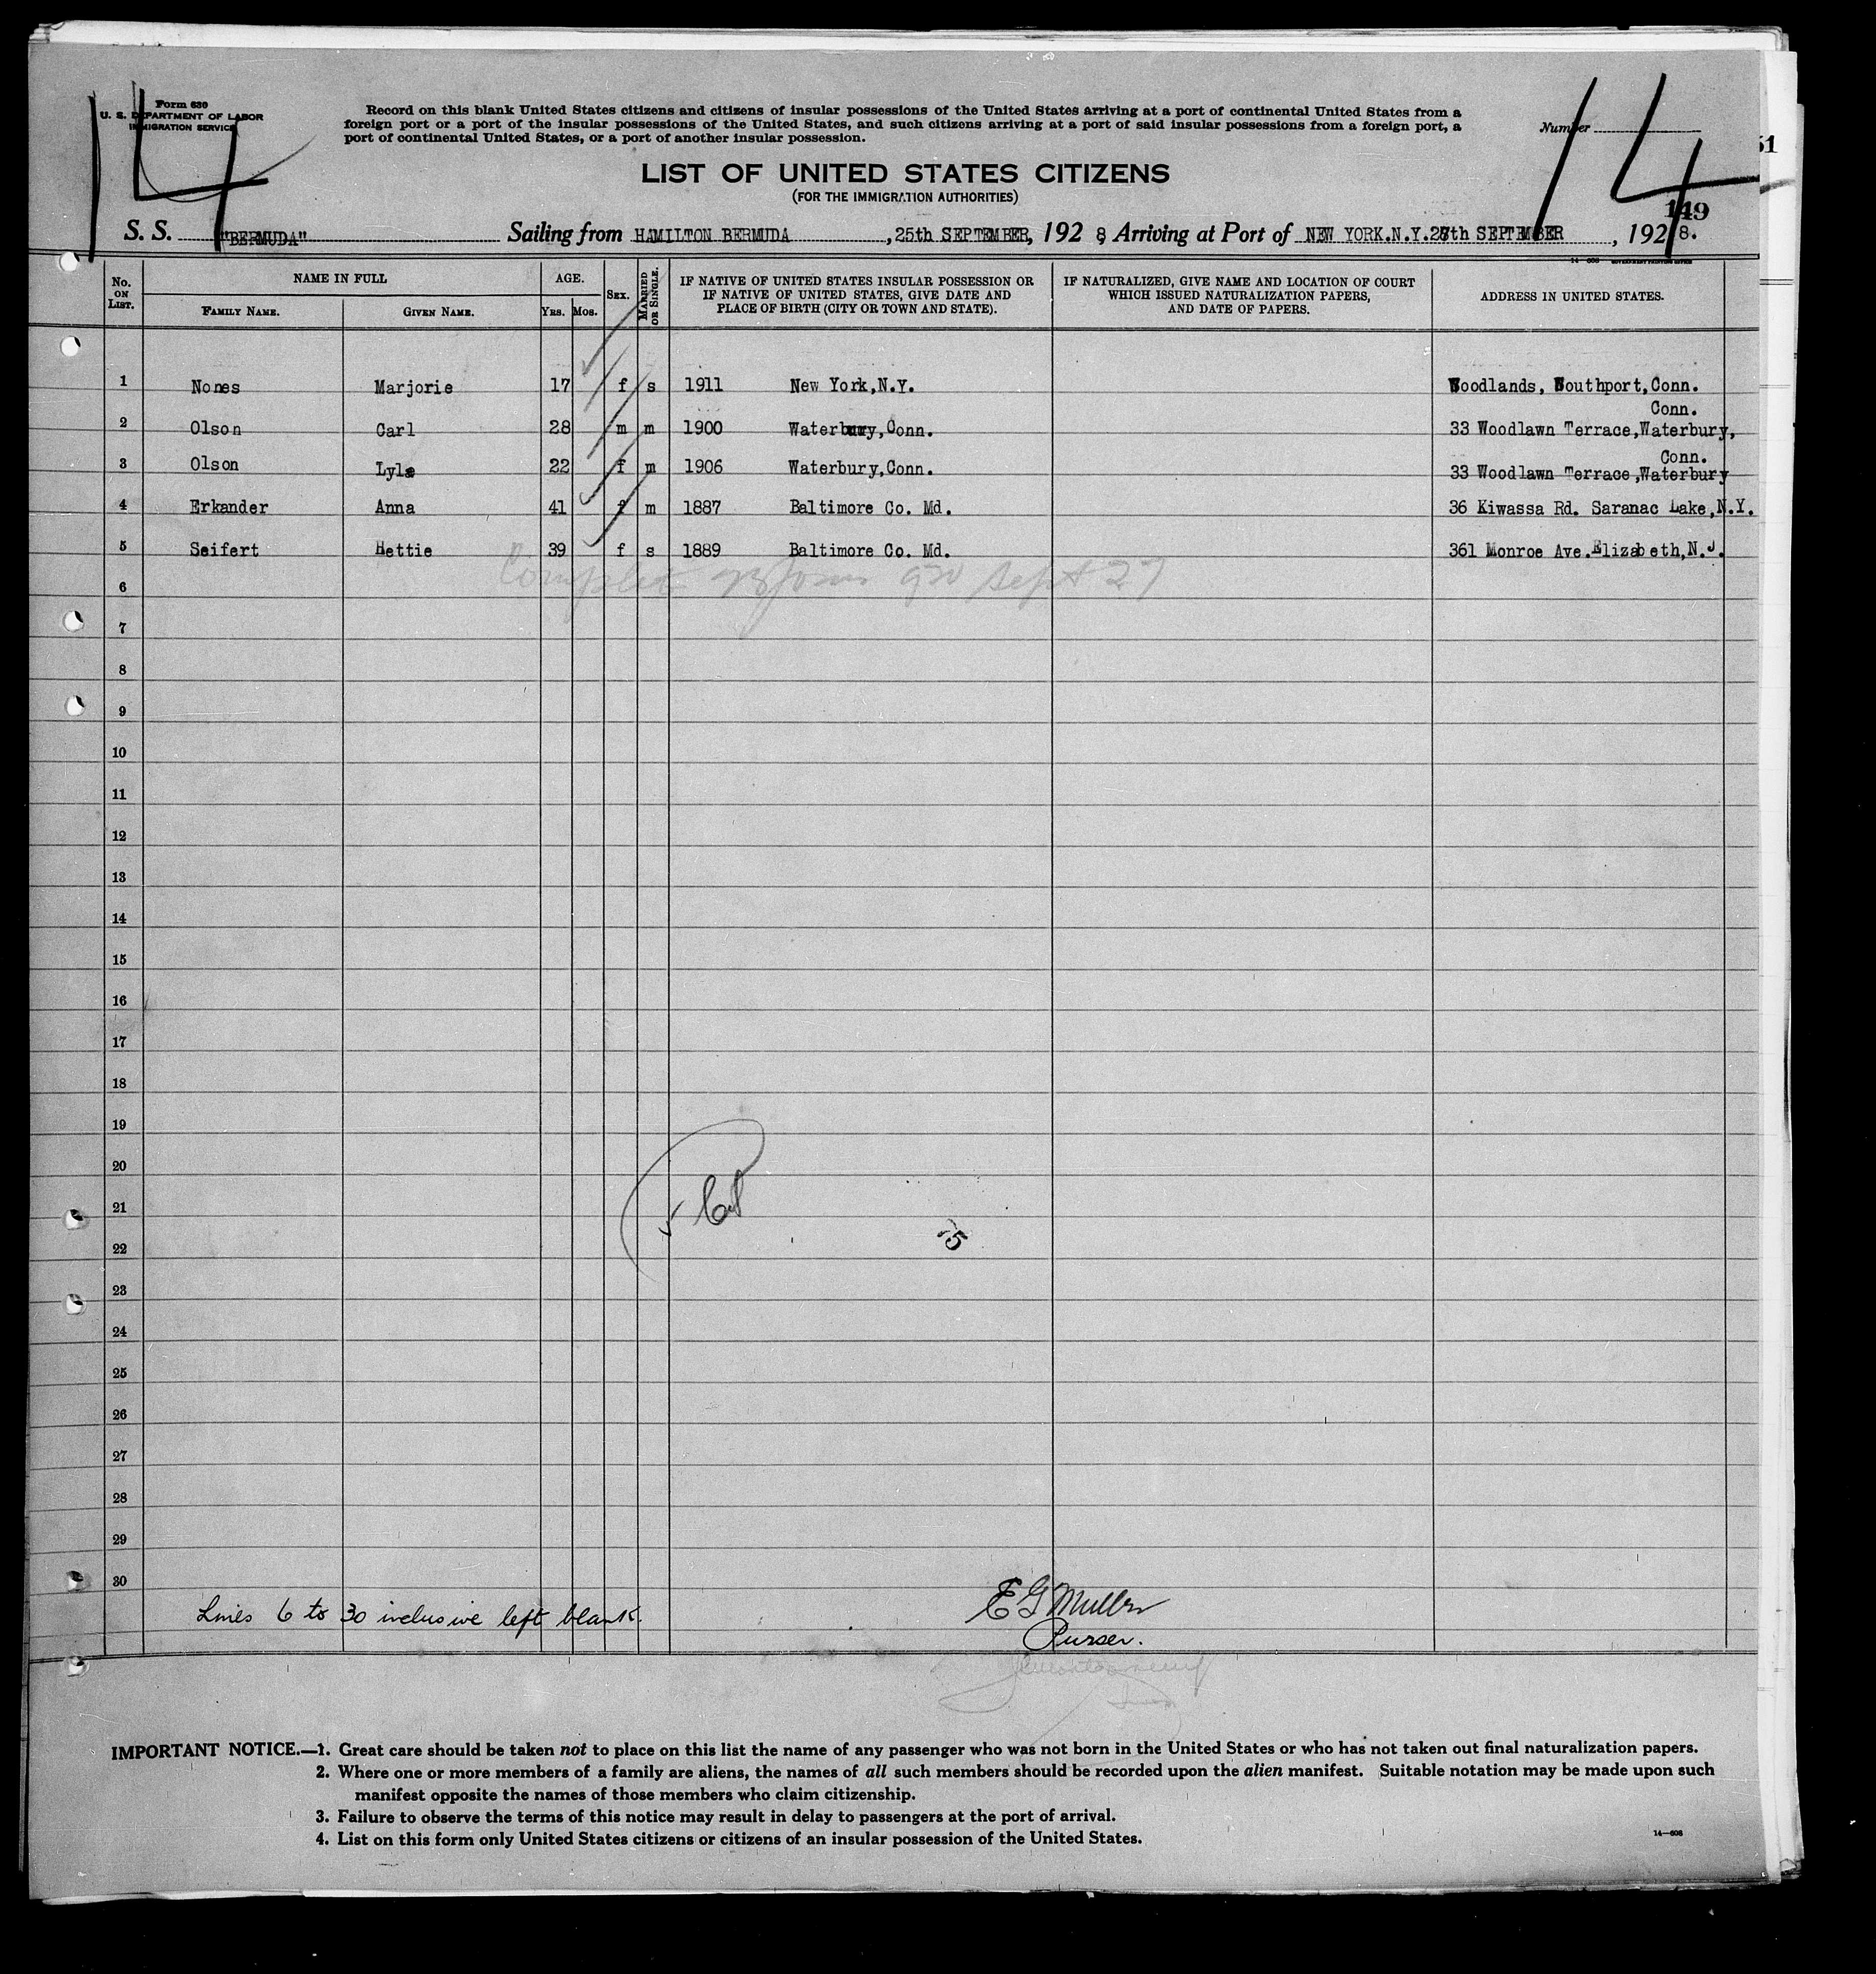 14 14
Form 630
U. S. DEPARTMENT OF LABOR
IMMIGRATION SERVICE
Record on this blank United States citizens and citizens of insular possessions of the United States arriving at a port of continental United States from a
foreign port or a port of the insular possessions of the United States, and such citizens arriving at a port of said insular possessions from a foreign port, a
port of continental United States, or a port of another insular possession.
Number
51
LIST OF UNITED STATES CITIZENS
(FOR THE IMMIGRATION AUTHORITIES)
149
S. S. "BERMUDA" Sailing from HAMILTON BERMUDA, 25th SEPTEMBER, 1928, Arriving at Port of NEW YORK.N.Y. 27th SEPTEMBER, 1928.
No. ON LIST. NAME IN FULL AGE. SEX. MARRIED OR SINGLE. IF NATIVE OF UNITED STATES INSULAR POSSESSION OR IF NATIVE OF UNITED STATES, GIVE DATE AND PLACE OF BIRTH (CITY OR TOWN AND STATE). IF NATURALIZED, GIVE NAME AND LOCATION OF COURT WHICH ISSUED NATURALIZATION PAPERS, AND DATE OF PAPERS. ADDRESS IN UNITED STATES.
FAMILY NAME. GIVEN NAME. YRS. MOS.
1 Nones Marjorie 17 f s 1911 New York,N.Y. Woodlands, Southport,Conn.
Conn.
2 Olson Carl 28 m m 1900 Waterbury,Conn. 33 Woodlawn Terrace,Waterbury,
Conn.
3 Olson Lyla 22 f m 1906 Waterbury,Conn. 33 Woodlawn Terrace,Waterbury
4 Erkander Anna 41 f m 1887 Baltimore Co. Md. 36 Kiwassa Rd. Saranac Lake,N.Y.
5 Seifert Hettie 39 f s 1889 Baltimore Co. Md. 361 Monroe Ave.Elizabeth,N.J.
Sept 27
6
7
8
9
10
11
12
13
14
15
16
17
18
19
20
21
22
23
24
25
26
27
28
29
30
Lines 6 to 30 inclusive left blank.
E G Muller
Purser.
IMPORTANT NOTICE.—1. Great care should be taken not to place on this list the name of any passenger who was not born in the United States or who has not taken out final naturalization papers.
2. Where one or more members of a family are aliens, the names of all such members should be recorded upon the alien manifest. Suitable notation may be made upon such
manifest opposite the names of those members who claim citizenship.
3. Failure to observe the terms of this notice may result in delay to passengers at the port of arrival.
4. List on this form only United States citizens or citizens of an insular possession of the United States.
14—608